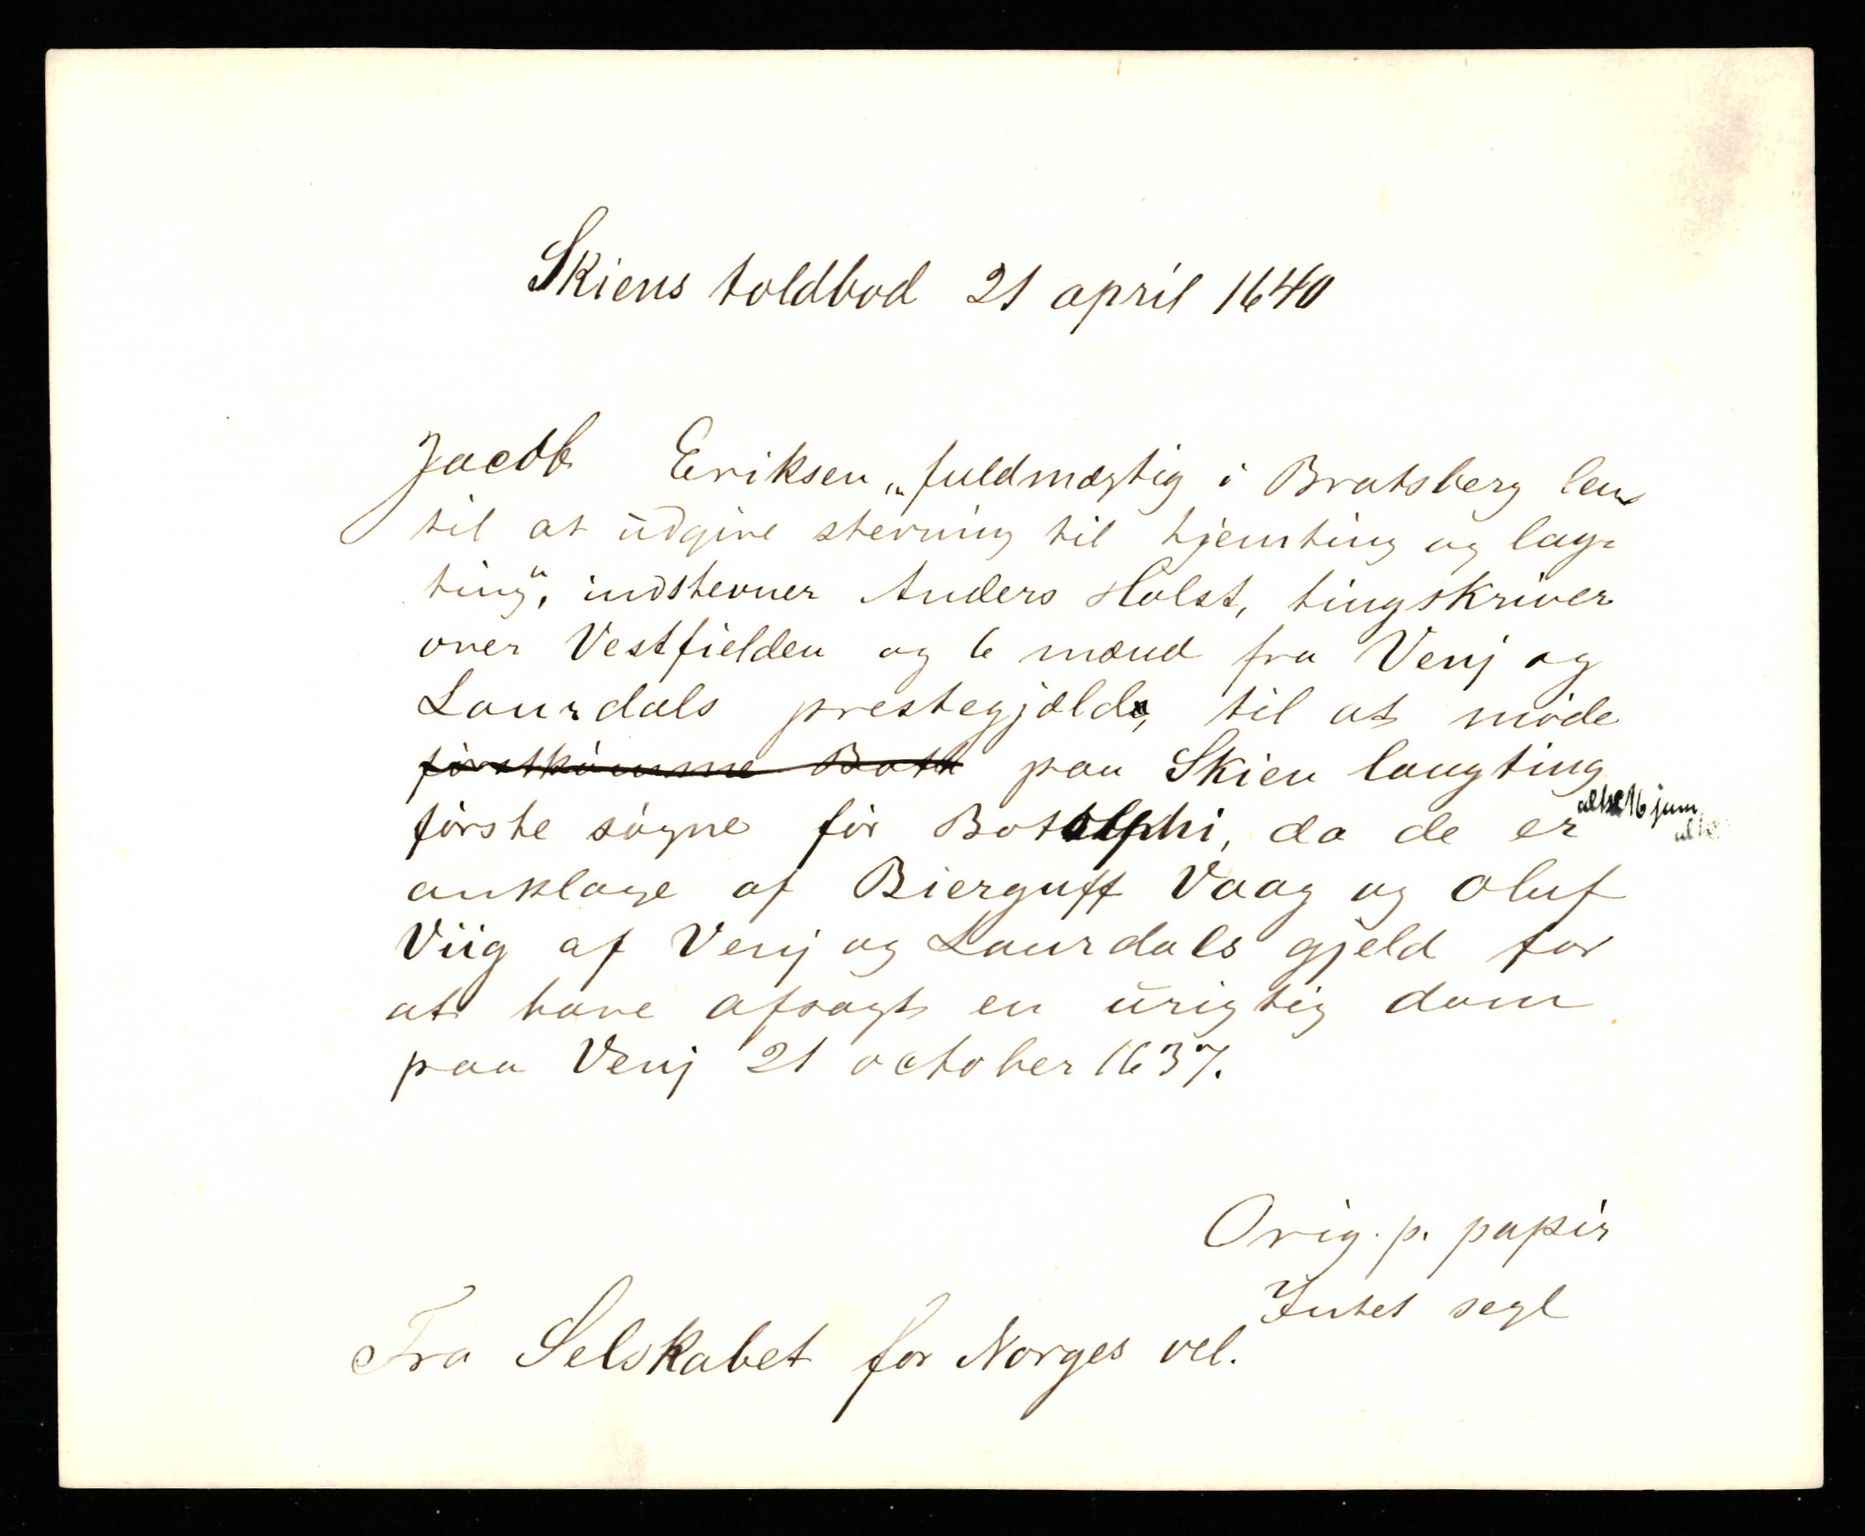 Skiens toldbod 21 april 1640
Jacob Eriksen „fuldmægtig i Bratsberg len
til at udgive stevning til hjemting og lag=
ting“, indstevner Anders Holst, tingskriver
over Vestfielden og 6 mænd fra Venj og
Laurdals prestegjæld, til at møde
førstkomme Both paa Skien laugting
første søgne før Botolphi, da de er altsaa 16 juni
anklage af Bierguff Vaag og Oluf
Viig af Venj og Laurdals gjeld for
at have afsagt en urigtig dom
paa Venj 21 october 1637.
Orig. p. papir
Intet segl
Fra Selskabet for Norges vel.